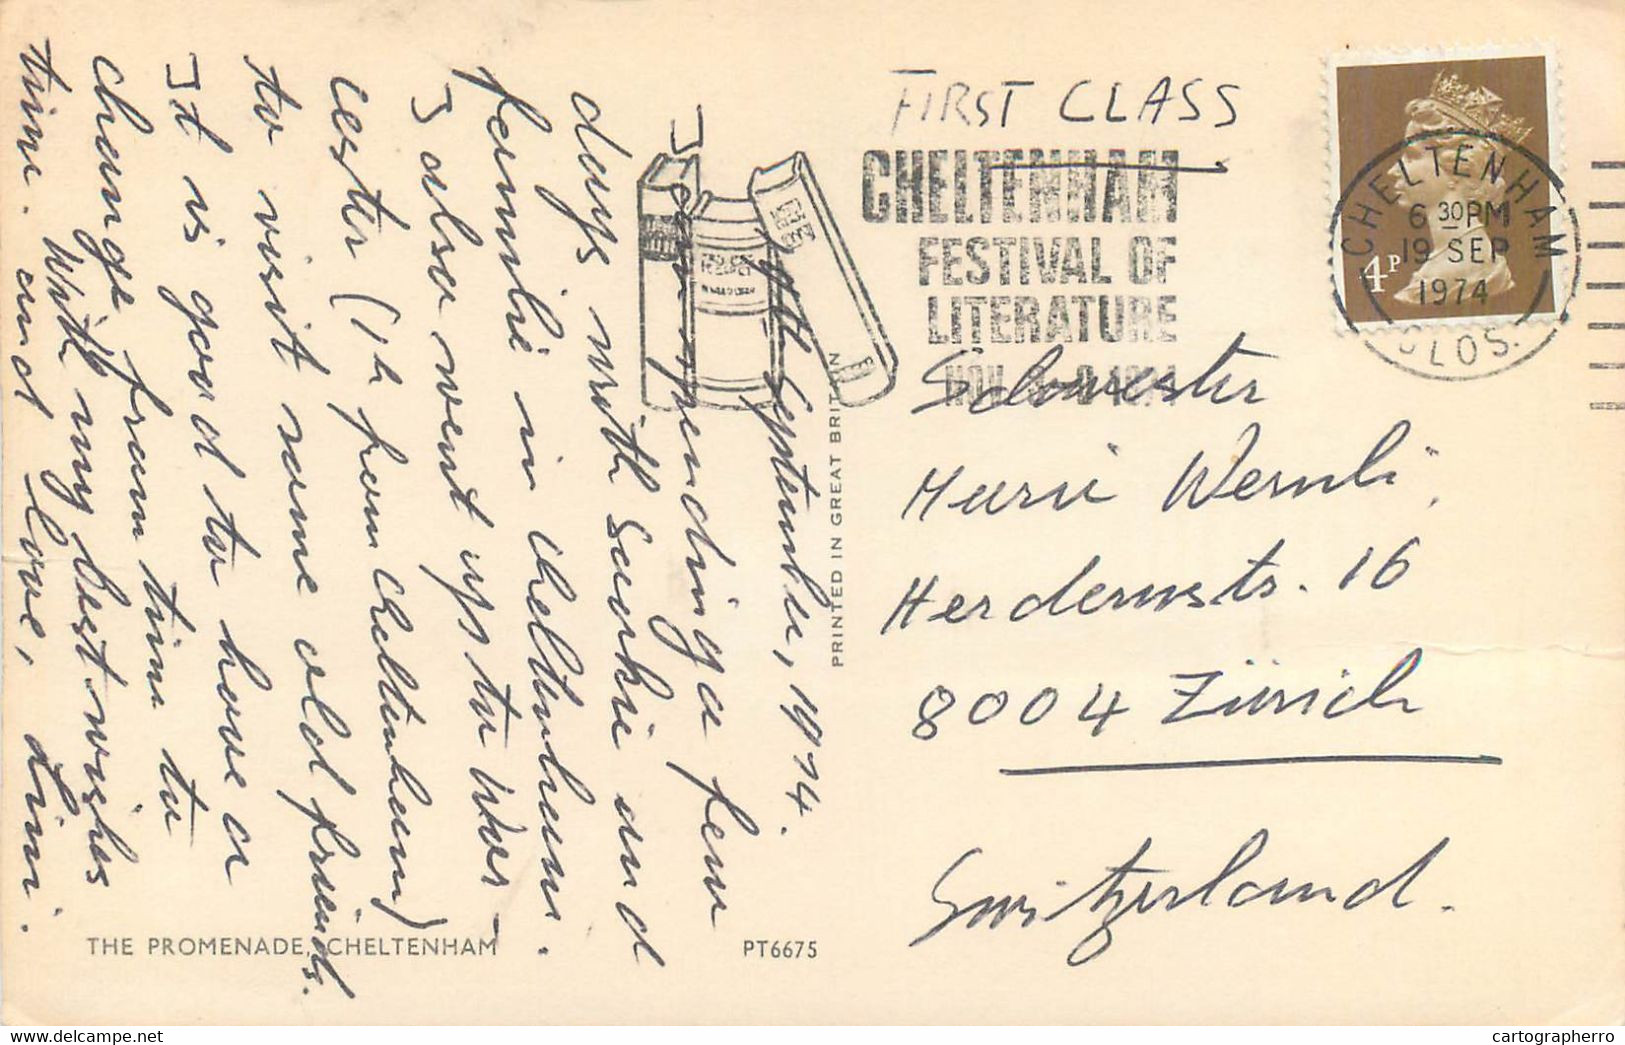 FIRST CLASS
CHELTENHAM
FESTIVAL OF
LITERATURE
NOV. 1974
CHELTENHAM
6 30 PM
19 SEP
1974
GLOS.
4P
Schwester
Marie Wernli,
Herdernstr. 16
8004 Zürich
Switzerland.
September, 1974.
I am spending a few
days with Saukie and
familie in Cheltenham.
I also went up to Wor-
cester (1h from Cheltenham)
to visit some old friends.
It is good to have a
change from time to
time. With my best wishes
and love, Dini.
PRINTED IN GREAT BRITAIN
THE PROMENADE, CHELTENHAM
PT6675
cartographerro
delcampe.net